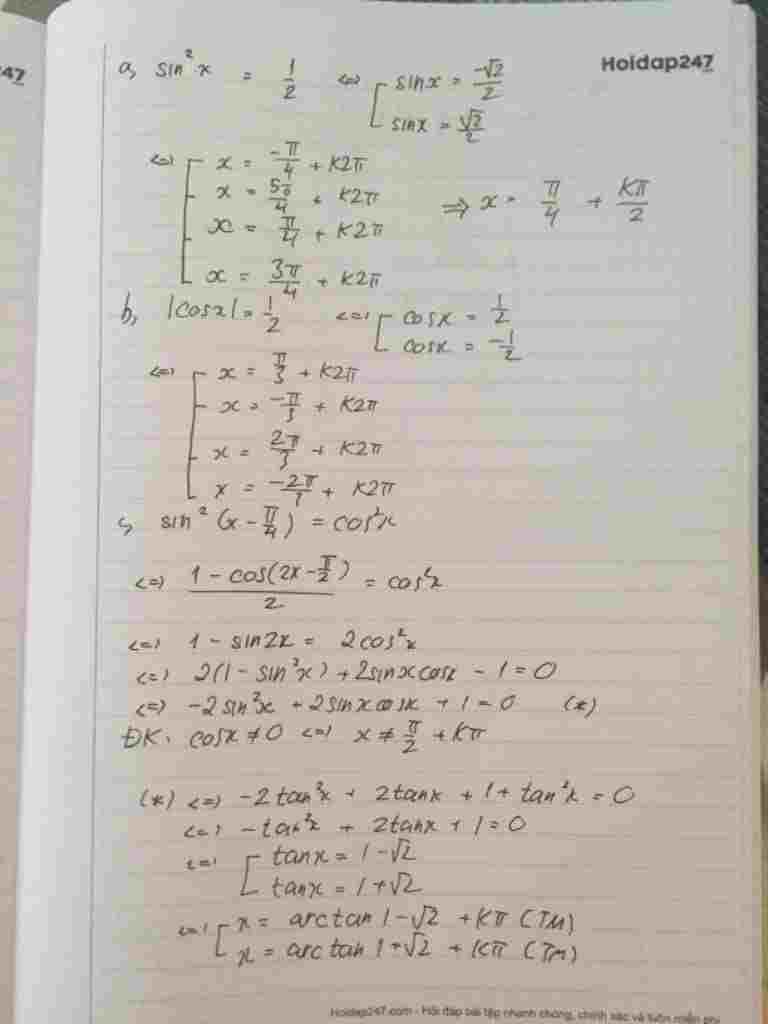 247
Hoidap247
a, sin²x = 1/2 <=> [ sinx = -√2/2
sinx = √2/2
<=> [ x = -π/4 + k2π
x = 5π/4 + k2π => x = π/4 + kπ/2
x = π/4 + k2π
x = 3π/4 + k2π
b, |cosx| = 1/2 <=> [ cosx = 1/2
cosx = -1/2
<=> [ x = π/3 + k2π
x = -π/3 + k2π
x = 2π/3 + k2π
x = -2π/3 + k2π
c, sin²(x - π/4) = cos²x
<=> 1 - cos(2x - π/2) / 2 = cos²x
<=> 1 - sin2x = 2cos²x
<=> 2(1 - sin²x) + 2sinxcosx - 1 = 0
<=> -2sin²x + 2sinxcosx + 1 = 0 (*)
ĐK: cosx ≠ 0 <=> x ≠ π/2 + kπ
(*) <=> -2tan²x + 2tanx + 1 + tan²x = 0
<=> -tan²x + 2tanx + 1 = 0
<=> [ tanx = 1-√2
tanx = 1+√2
<=> [ x = arctan 1-√2 + kπ (TM)
x = arctan 1+√2 + kπ (TM)
Hoidap247.com - Hỏi đáp bài tập nhanh chóng, chính xác và luôn miễn phí